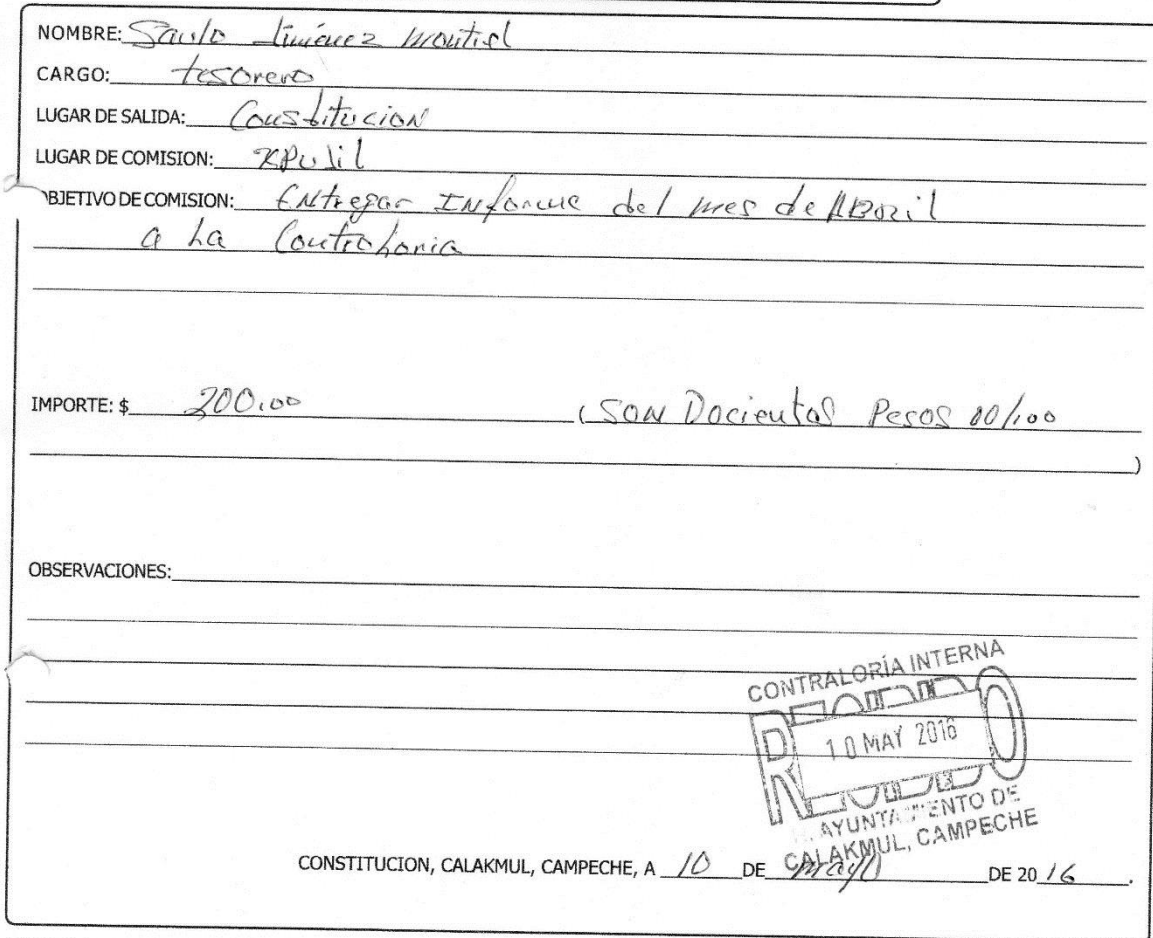 NOMBRE: Saulo Jiménez Montiel
CARGO: tesorero
LUGAR DE SALIDA: Constitucion
LUGAR DE COMISION: XPUJil
OBJETIVO DE COMISION: Entregar INforme del mes de ABRil
a La Contraloria
IMPORTE: $ 200.00 (SON Docientos Pesos 00/100
)
OBSERVACIONES:
CONTRALORÍA INTERNA
RECIBIDO
10 MAY 2016
H. AYUNTAMIENTO DE
CALAKMUL, CAMPECHE
CONSTITUCION, CALAKMUL, CAMPECHE, A 10 DE mayo DE 2016.